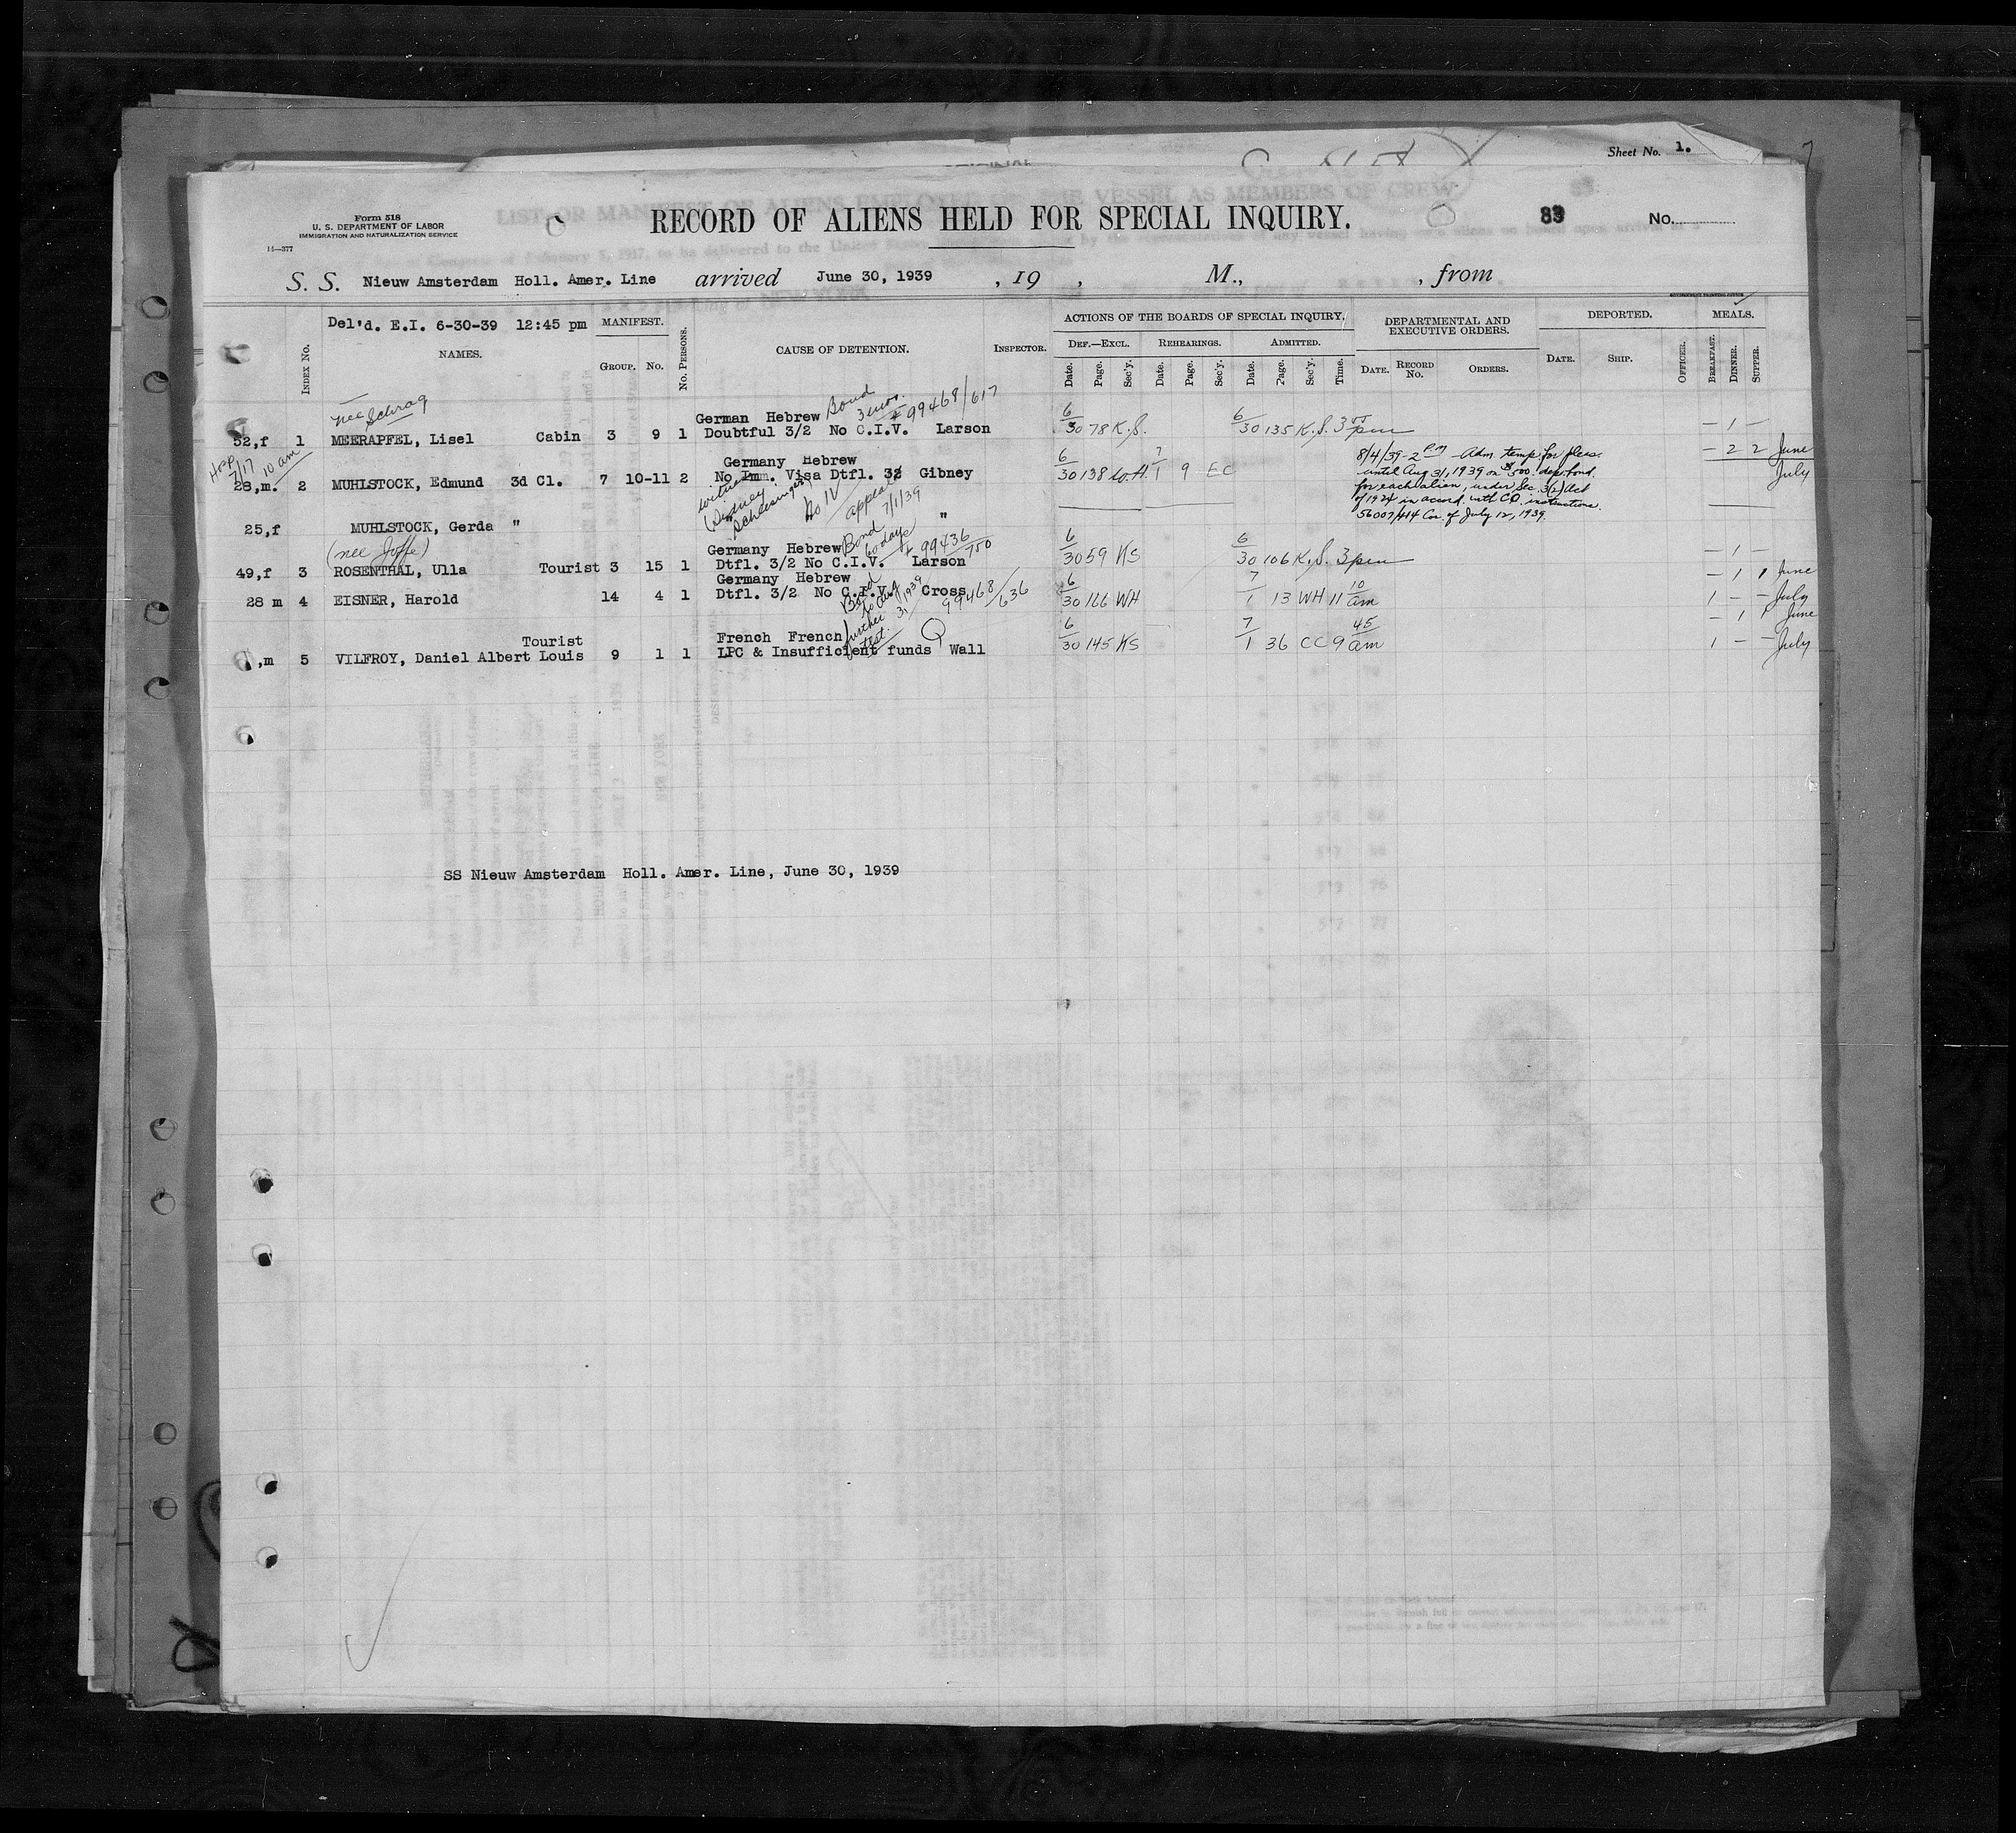 Sheet No. 1.
Form 518
U. S. DEPARTMENT OF LABOR
IMMIGRATION AND NATURALIZATION SERVICE
14—377
RECORD OF ALIENS HELD FOR SPECIAL INQUIRY.
83
No.
S. S. Nieuw Amsterdam Holl. Amer. Line arrived June 30, 1939 , 19 , M., , from
GOVERNMENT PRINTING OFFICE
Del'd. E.I. 6-30-39 12:45 pm MANIFEST. ACTIONS OF THE BOARDS OF SPECIAL INQUIRY. DEPARTMENTAL AND EXECUTIVE ORDERS. DEPORTED. MEALS.
DEF.—EXCL. REHEARINGS. ADMITTED.
INDEX No. NAMES. GROUP. No. No. PERSONS. CAUSE OF DETENTION. INSPECTOR. Date. Page. Sec'y. Date. Page. Sec'y. Date. Page. Sec'y. Time. DATE. RECORD No. ORDERS. DATE. SHIP. OFFICER. BREAKFAST. DINNER. SUPPER.
nee Schrag
German Hebrew Bond 3 mos. # 99468/617
52,f 1 MEERAPFEL, Lisel Cabin 3 9 1 Doubtful 3/2 No C.I.V. Larson 6/30 78 K.S. 6/30 135 K.S. 3 pm — 1 —
Hosp 7/17 10 am
Germany Hebrew
28,m. 2 MUHLSTOCK, Edmund 3d Cl. 7 10-11 2 No Imm. Visa Dtfl. 3/2 Gibney 6/30 138 W.H. 7/1 9 EC — 2 2 June
July
8/4/39 - 2 pm - Adm. temp. for pleas.
until Aug 31, 1939 on $500. dep. bond
for each alien, under Sec. 3(2) Act
of 1924 in accord. with C.O. instructions
56007/414 Con. of July 12, 1939.
witness
(Sidney
Schlesinger
No IV
appear 7/1/39
25,f MUHLSTOCK, Gerda " " "
(nee Joffe)
Germany Hebrew Bond 60 days # 99436/750
49,f 3 ROSENTHAL, Ulla Tourist 3 15 1 Dtfl. 3/2 No C.I.V. Larson 6/30 59 KS 6/30 106 K.S. 3 pm — 1 —
Germany Hebrew
28 m 4 EISNER, Harold 14 4 1 Dtfl. 3/2 No C.I.V. Cross 6/30 166 WH 7/1 13 WH 11 10 am — 1 1 June
1 — — July
Bond to Aug 31, 1939 99468/636
further
Tourist French French
,m 5 VILFROY, Daniel Albert Louis 9 1 1 LPC & Insufficient funds Wall 6/30 145 KS 7/1 36 CC 9 45 am — 1 1 June
1 — — July
SS Nieuw Amsterdam Holl. Amer. Line, June 30, 1939